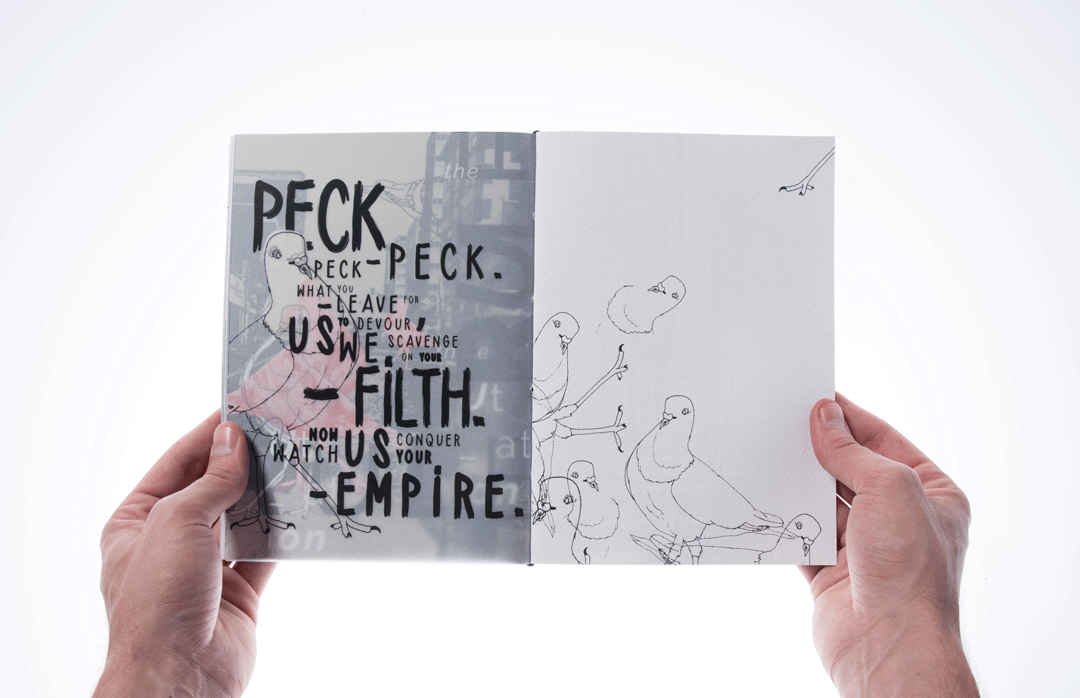 the
PECK
PECK-PECK.
WHAT YOU
-LEAVE FOR
US TO DEVOUR,
WE SCAVENGE
ON YOUR
-FiLTH.
NOW
WATCH US CONQUER
YOUR
-EMPiRE.
at
on